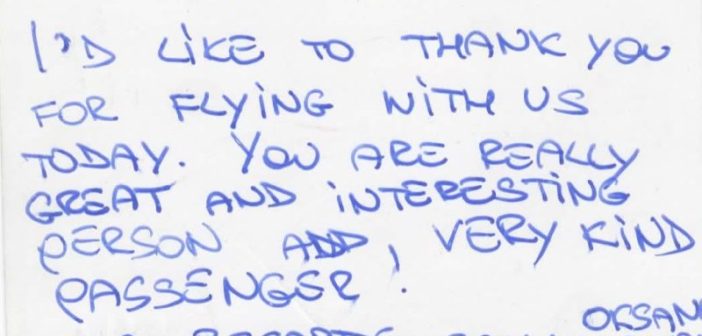 I'D LIKE TO THANK YOU
FOR FLYING WITH US
TODAY. YOU ARE REALLY
GREAT AND INTERESTING
PERSON ADD, VERY KIND
PASSENGER!